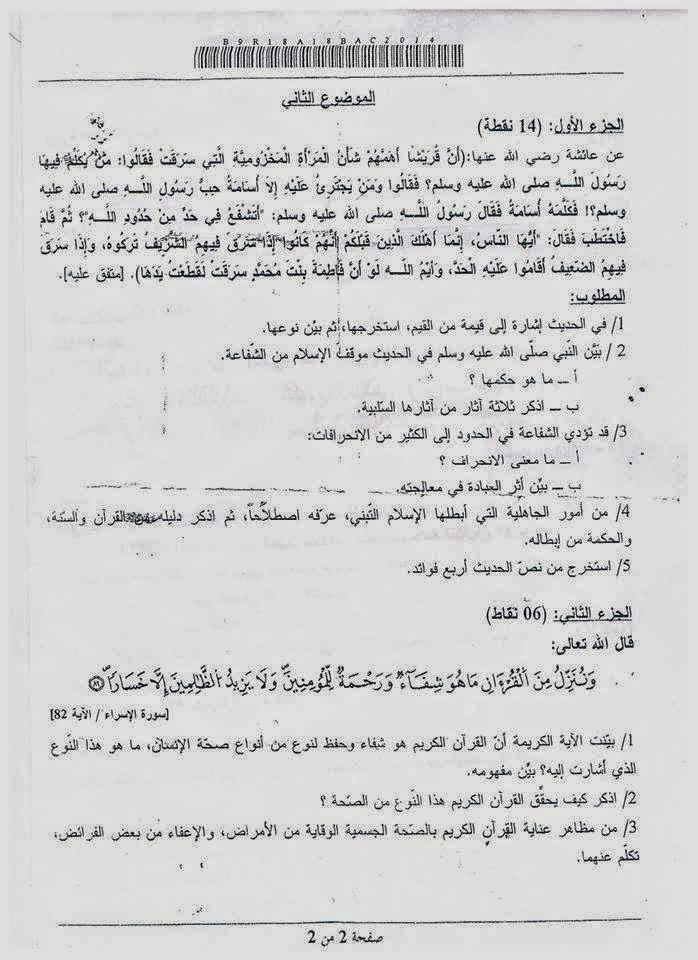 B9R18A18BAC2014
الموضوع الثاني
الجزء الأول: (14 نقطة)
عن عائشة رضي الله عنها:(أَنَّ قُرَيْشًا أَهَمَّهُمْ شَأْنُ المَرْأَةِ المَخْزُومِيَّةِ الَّتِي سَرَقَتْ فَقَالُوا: مَنْ يُكَلِّمُ فِيهَا
رَسُولَ اللَّهِ صلى الله عليه وسلم؟ فَقَالُوا وَمَنْ يَجْتَرِئُ عَلَيْهِ إِلا أُسَامَةُ حِبُّ رَسُولِ اللَّهِ صلى الله عليه
وسلم؟! فَكَلَّمَهُ أُسَامَةُ فَقَالَ رَسُولُ اللَّهِ صلى الله عليه وسلم: "أَتَشْفَعُ فِي حَدٍّ مِنْ حُدُودِ اللَّهِ"؟ ثُمَّ قَامَ
فَاخْتَطَبَ فَقَالَ: "أَيُّهَا النَّاسُ، إِنَّمَا أَهْلَكَ الَّذِينَ قَبْلَكُمْ أَنَّهُمْ كَانُوا إِذَا سَرَقَ فِيهِمُ الشَّرِيفُ تَرَكُوهُ، وَإِذَا سَرَقَ
فِيهِمُ الضَّعِيفُ أَقَامُوا عَلَيْهِ الْحَدَّ، وَأَيْمُ اللَّهِ لَوْ أَنَّ فَاطِمَةَ بِنْتَ مُحَمَّدٍ سَرَقَتْ لَقَطَعْتُ يَدَهَا). [متفق عليه].
المطلوب:
1/ في الحديث إشارة إلى قيمة من القيم، استخرجها، ثم بيّن نوعها.
2/ بَيَّن النّبي صلّى الله عليه وسلم في الحديث موقف الإسلام من الشّفاعة.
أ ــ ما هو حكمها ؟
ب ــ اذكر ثلاثة آثار من آثارها السّلبية.
3/ قد تؤدي الشفاعة في الحدود إلى الكثير من الانحرافات:
أ ــ ما معنى الانحراف ؟
ب ــ بيّن أثر العبادة في معالجته.
4/ من أمور الجاهلية التي أبطلها الإسلام التّبني، عرّفه اصطلاحاً، ثم اذكر دليله من القرآن والسنة،
والحكمة من إبطاله.
5/ استخرج من نصّ الحديث أربع فوائد.
الجزء الثاني: (06 نقاط)
قال الله تعالى:
وَنُنَزِّلُ مِنَ اَلْقُرْءَانِ مَا هُوَ شِفَآءٌ وَرَحْمَةٌ لِّلْمُومِنِينَ وَلَا يَزِيدُ اَلظَّالِمِينَ إِلَّا خَسَاراً ٨٢
[سورة الإسراء / الآية 82]
1/ بيّنت الآية الكريمة أنّ القرآن الكريم هو شفاء وحفظ لنوع من أنواع صحّة الإنسان، ما هو هذا النّوع
الذي أشارت إليه؟ بيِّن مفهومه.
2/ اذكر كيف يحقّق القرآن الكريم هذا النّوع من الصّحة ؟
3/ من مظاهر عناية القرآن الكريم بالصّحة الجسمية الوقاية من الأمراض، والإعفاء من بعض الفرائض،
تكلّم عنهما.
صفحة 2 من 2